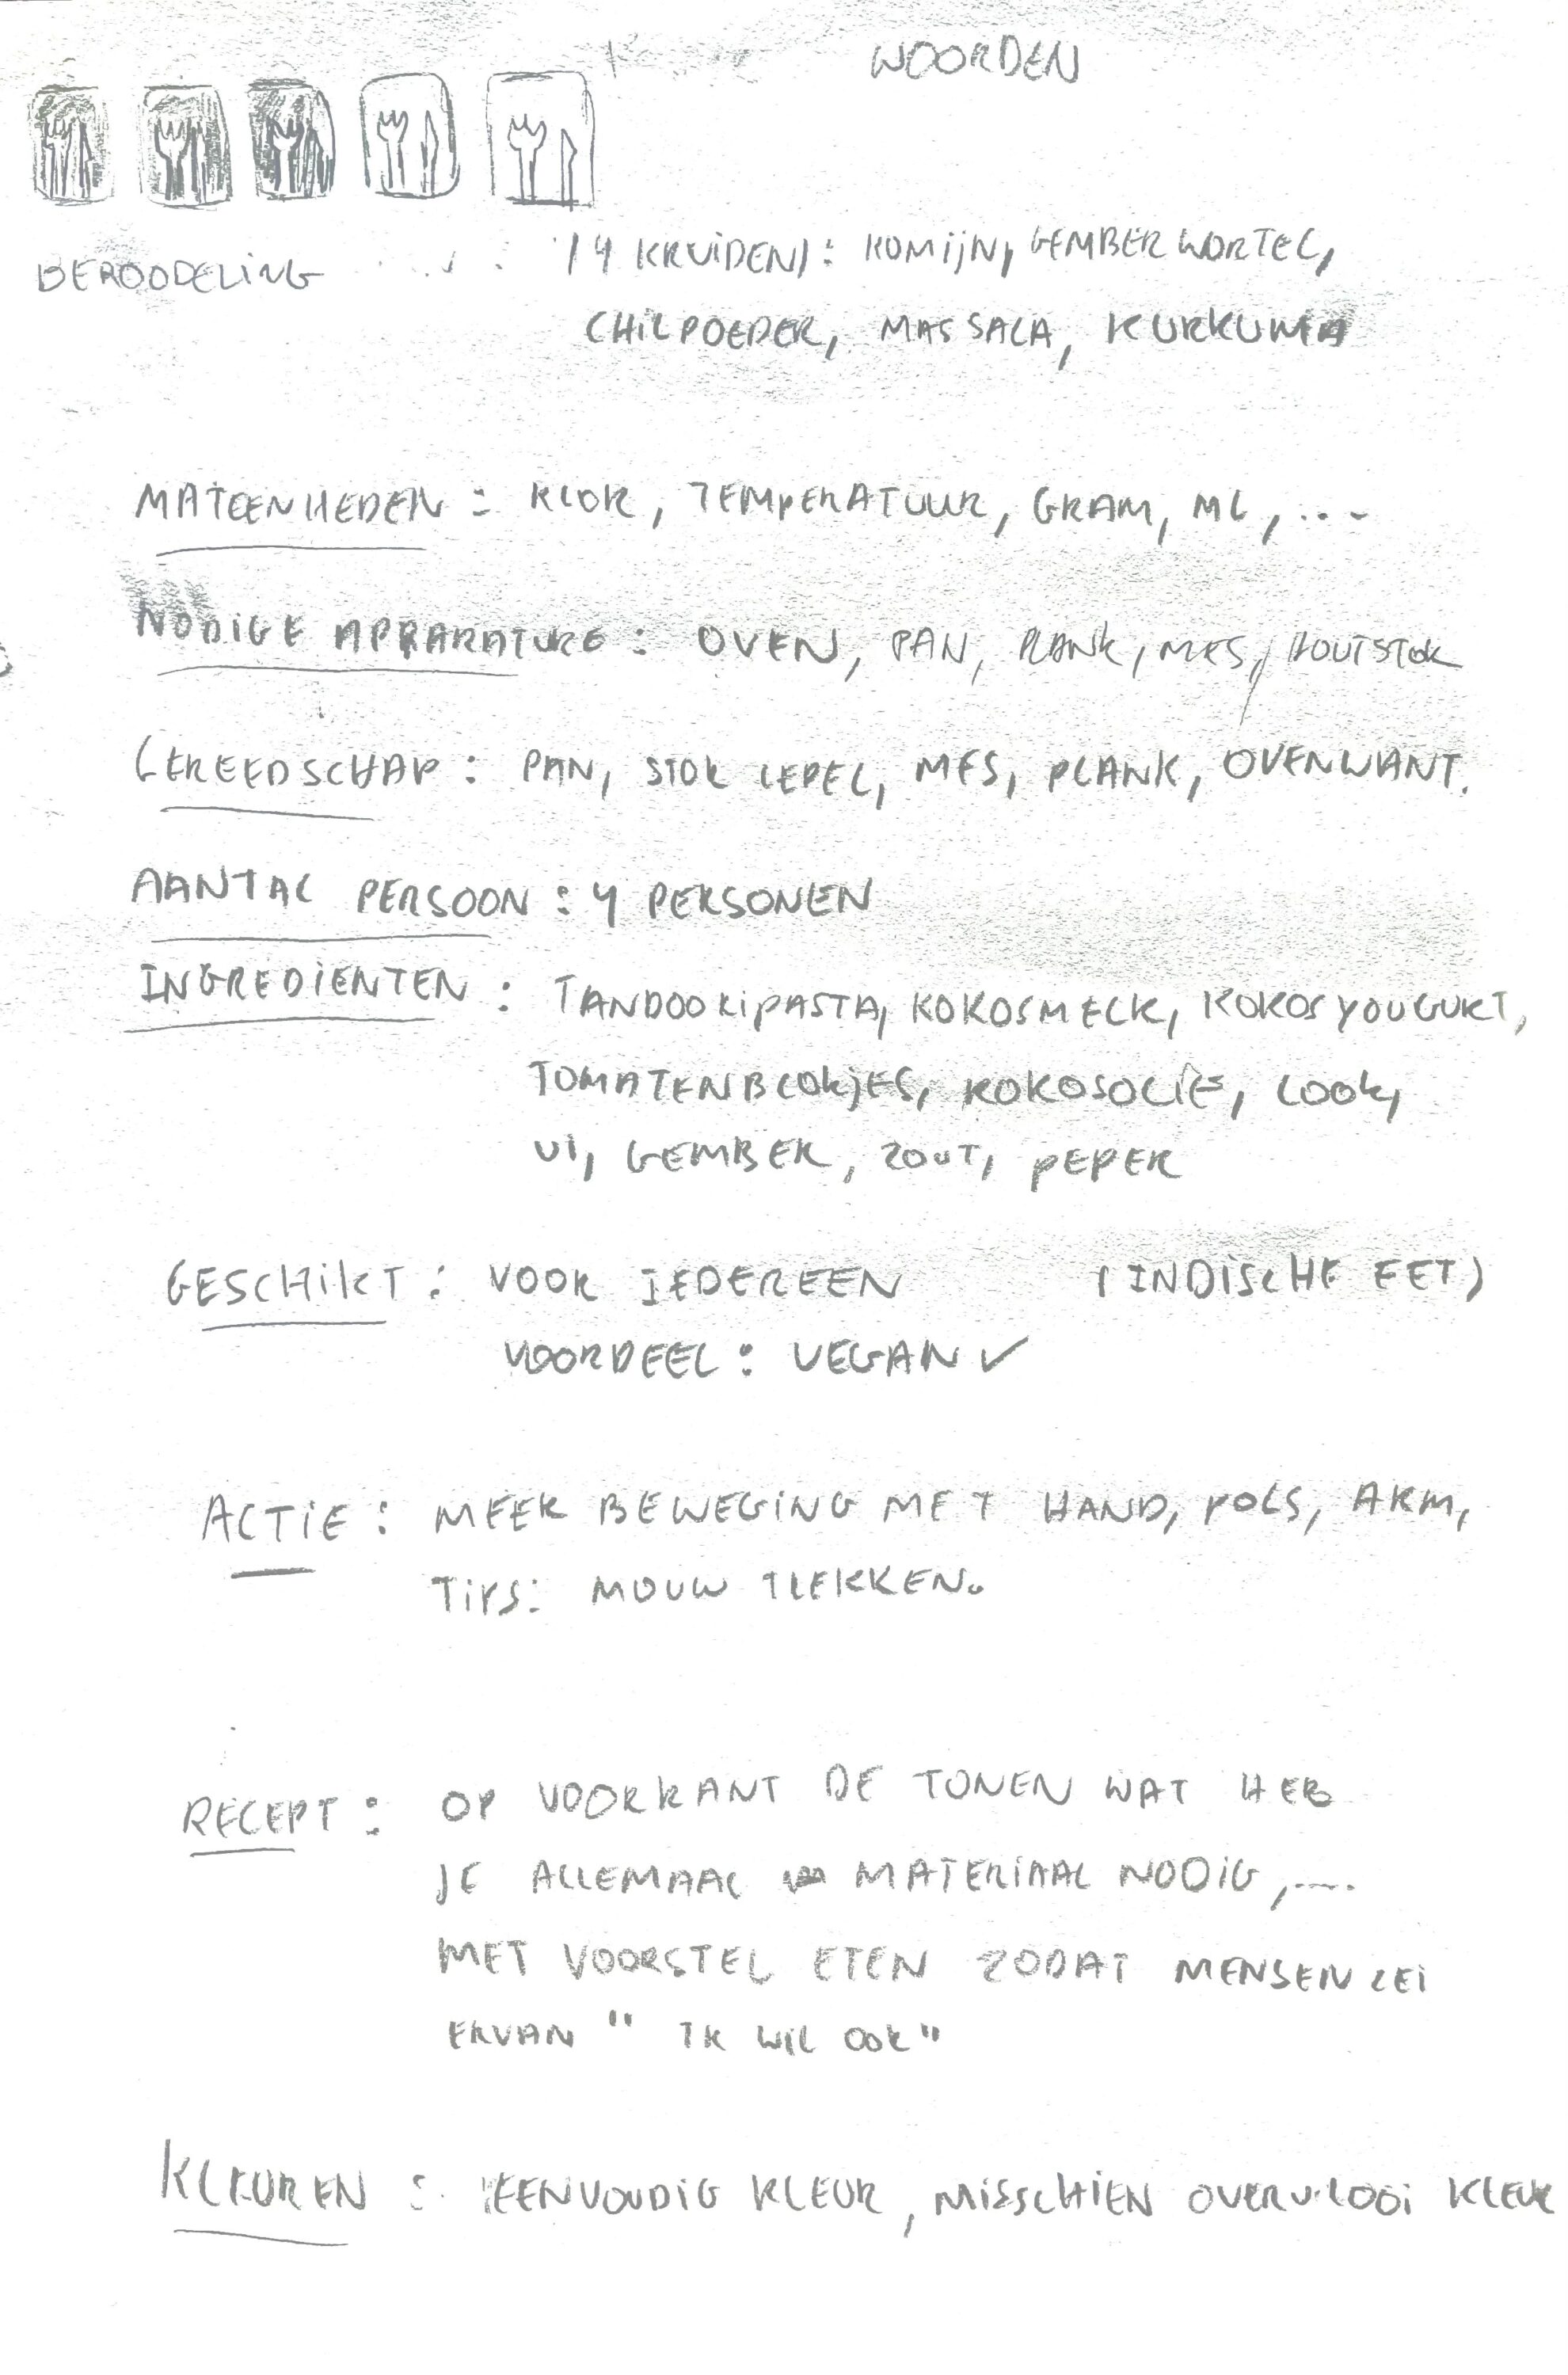 WOORDEN
BEROODELING
(4 KRUIDEN): KOMIJN, GEMBERWORTEL,
CHILPOEDER, MASSALA, KURKUMA
MATEENHEDEN : KLOK, TEMPERATUUR, GRAM, ML, ...
NODIGE APPARATURE : OVEN, PAN, PLANK, MES, HOUTSTOK
GEREEDSCHAP : PAN, STOK LEPEL, MES, PLANK, OVENWANT.
AANTAL PERSOON : 4 PERSONEN
INGREDIENTEN : TANDOORIPASTA, KOKOSMELK, KOKOSYOUGURT,
TOMATENBLOKJES, KOKOSOLIE, LOOK,
UI, GEMBER, ZOUT, PEPER
GESCHIKT : VOOR IEDEREEN (INDISCHE EET)
VOORDEEL : VEGAN ✓
ACTIE : MEER BEWEGING MET HAND, POLS, ARM,
TIPS: MOUW TLEKKEN.
RECEPT : OP VOORKANT DE TONEN WAT HEB
JE ALLEMAAL MATERIAAL NODIG, ....
MET VOORSTEL ETEN ZODAT MENSEN ZEI
ERVAN " IK WIL OOK"
KLEUREN : EENVOUDIG KLEUR, MISSCHIEN KLEUR